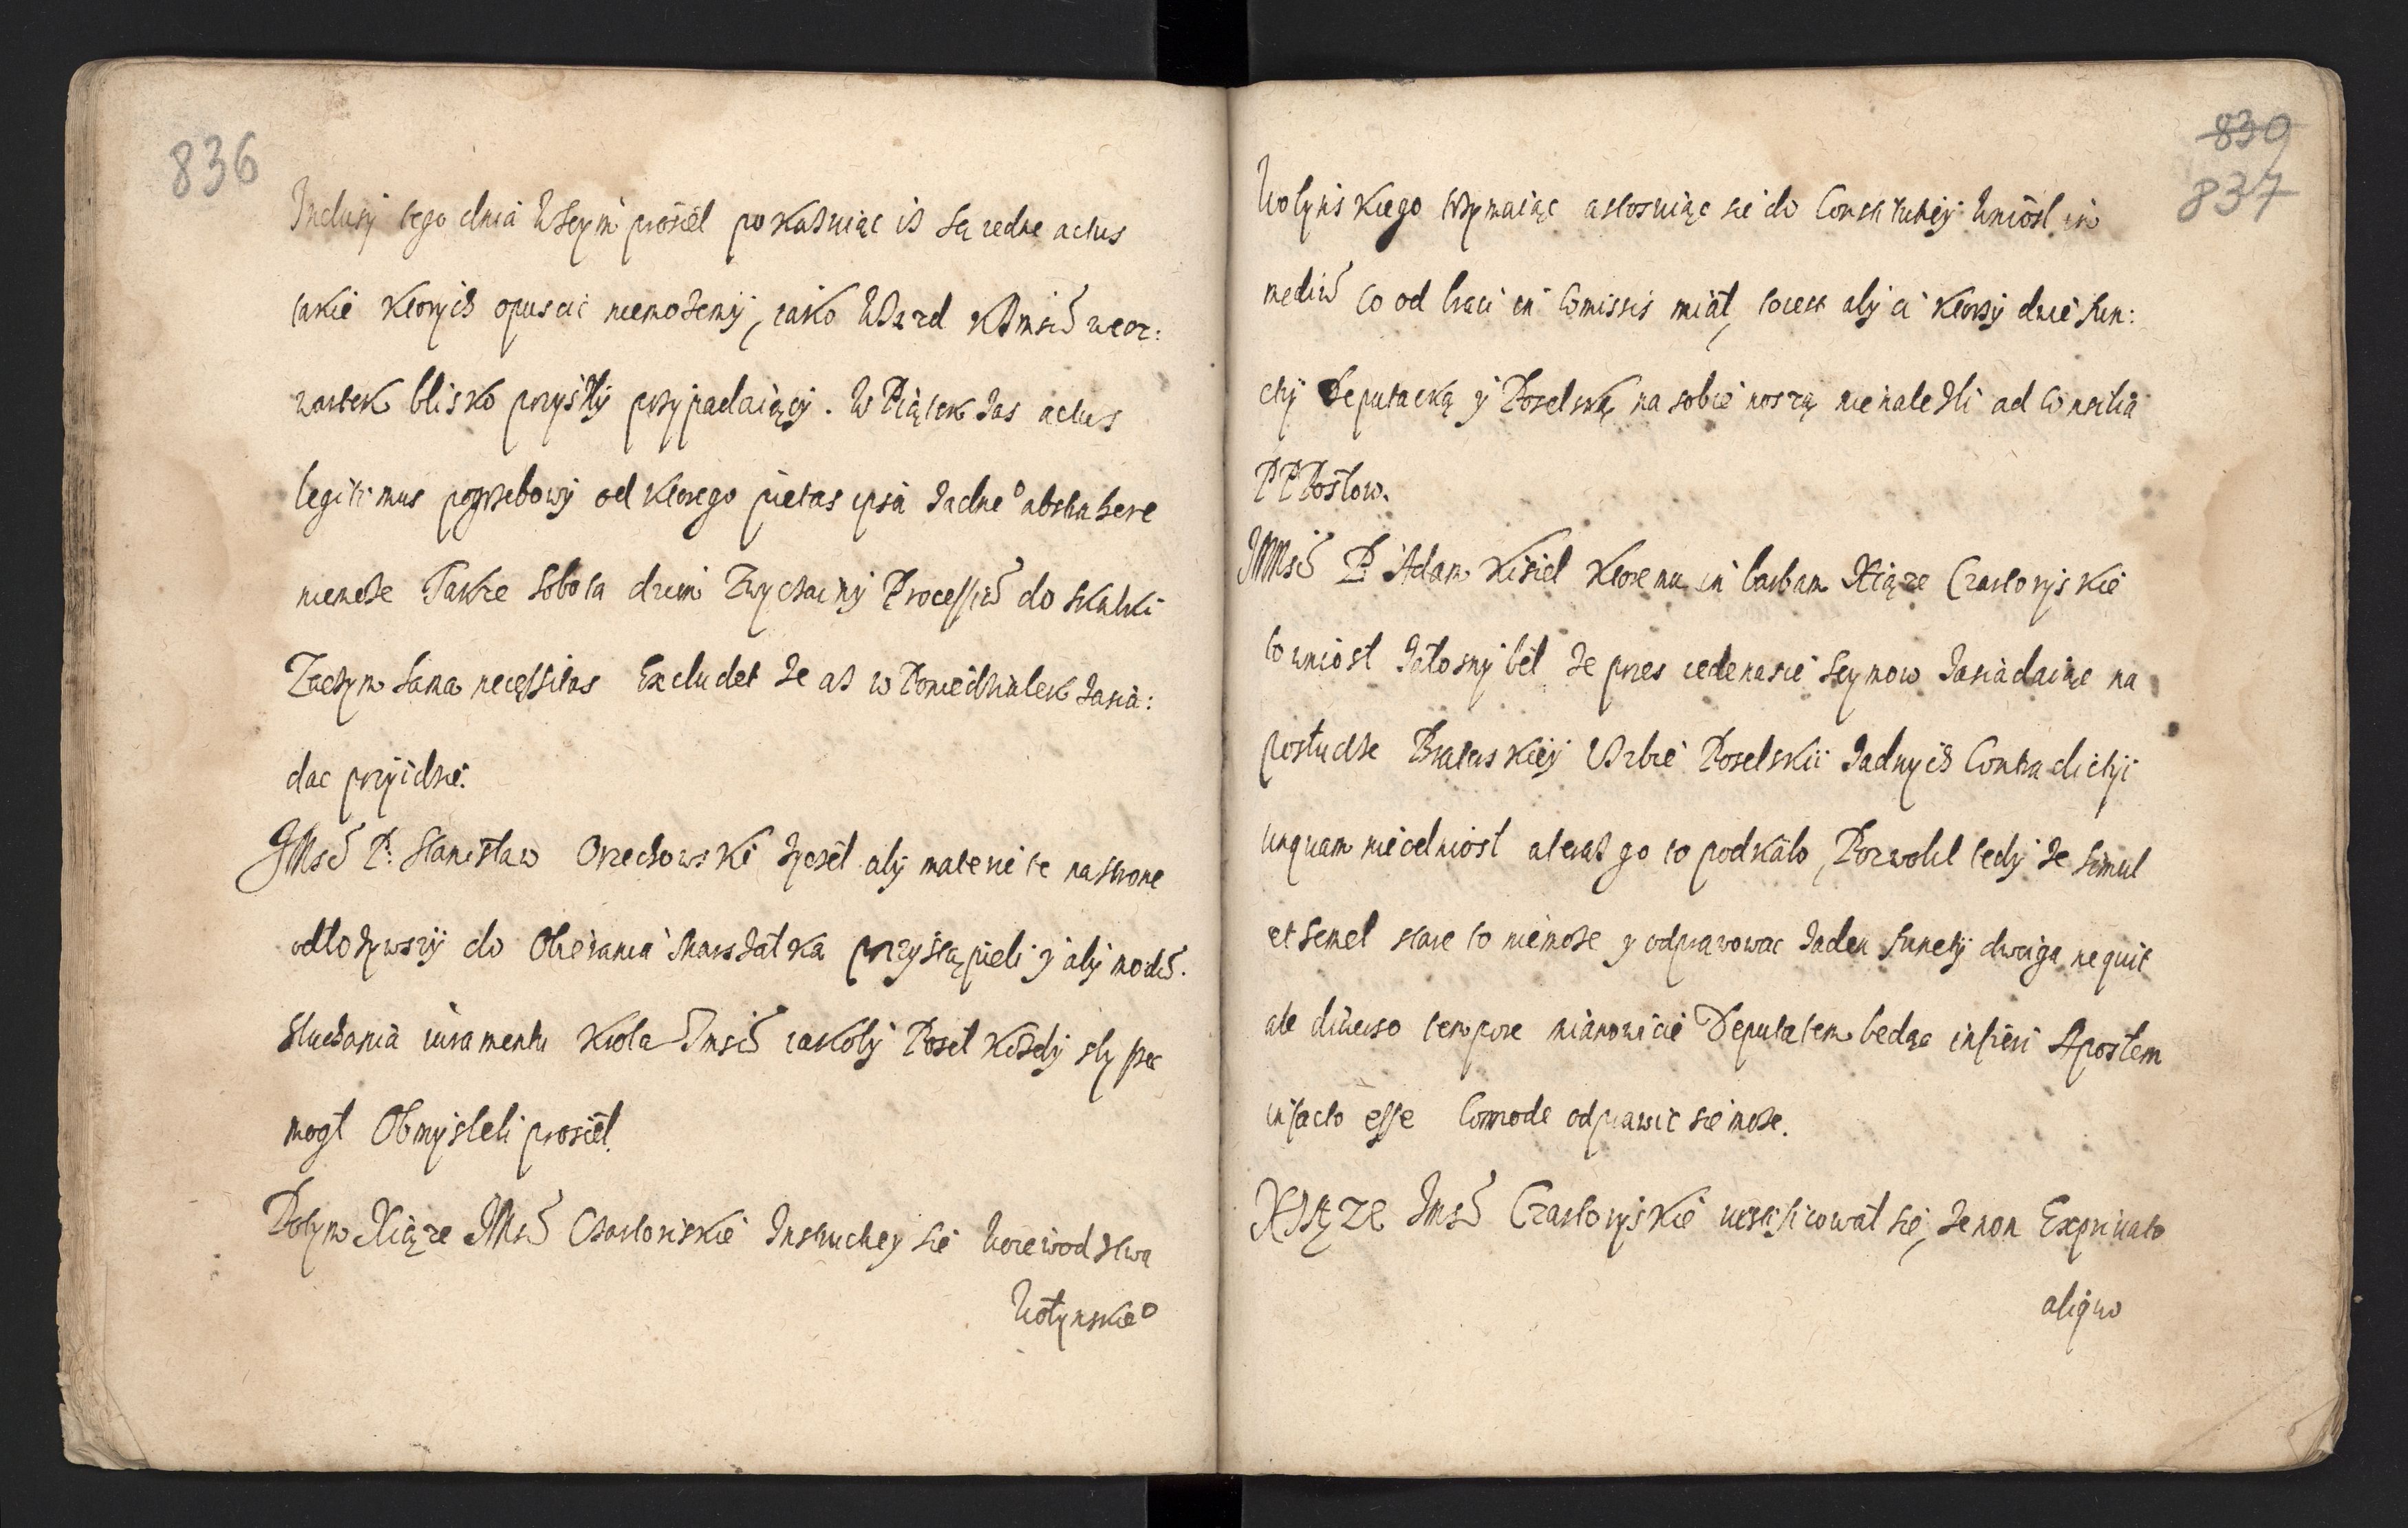 836
Inclusy tego dnia W Seym prosiel pokazuiąc iz są iedne actus
takie ktorych opuscic niemozemy, iako Wiazd KJmsci wczo:
wartek blisko przyszły przypadaiący. W Piątek zas actus
legitimus pogrzebowy od ktorego pietas ipsa zadneo abstrahere
nemoze Takze Sobota dzien Zwyczainy Processiey do Skalki
Zaczym sama necessitas Excludet ze as w Poniedzialek zasia:
dac przyidzie.
JMsci P. Stanisław Orzechowski zyczel aby materie te na strone
odlozywszy do Obierania Marszałka przystąpieli y aby modum
sluchania iuramentu Krola Jmsci iakoby Posel kozdy słyszec
mogl Obmysleli prosiel.
Potym Xiąze JMsc Czartoriskie Instructiey sie Woiewodstwa
Wołynskieo
839
837
Wolynskiego trzymaiąc astosuiąc sie do Constitutiey wniosl im
medium co od braci in Comissis miał, to iest aby ci ktorzy dwie fun:
ctij Deputacką y Poselską na sobie noszą nie nalezli ad Consilia
PP Posłow.
JMMsci P. Adam Kisiel ktoremu in barbam Xiąze Czartoryskie
to wniosł załosny bel ze przes iedenascie Seymow zasiadaiąc na
posłudze Braterskiey W Izbie Poselskii zadnych Contradictyi
unquam nieodniosł a teraz go to podkało, Pozwolil tedy ze simul
et semel stare to niemoze y odprawowac zaden functij dwoiga nequit
ale diuerso tempore mianowicie Deputatem bedąc infieri A posłem
infacto esse Commode odprawic sie moze.
XIĄZE Jmsc Czartoryskie iustificował się, ze non Exprivato
aliquo